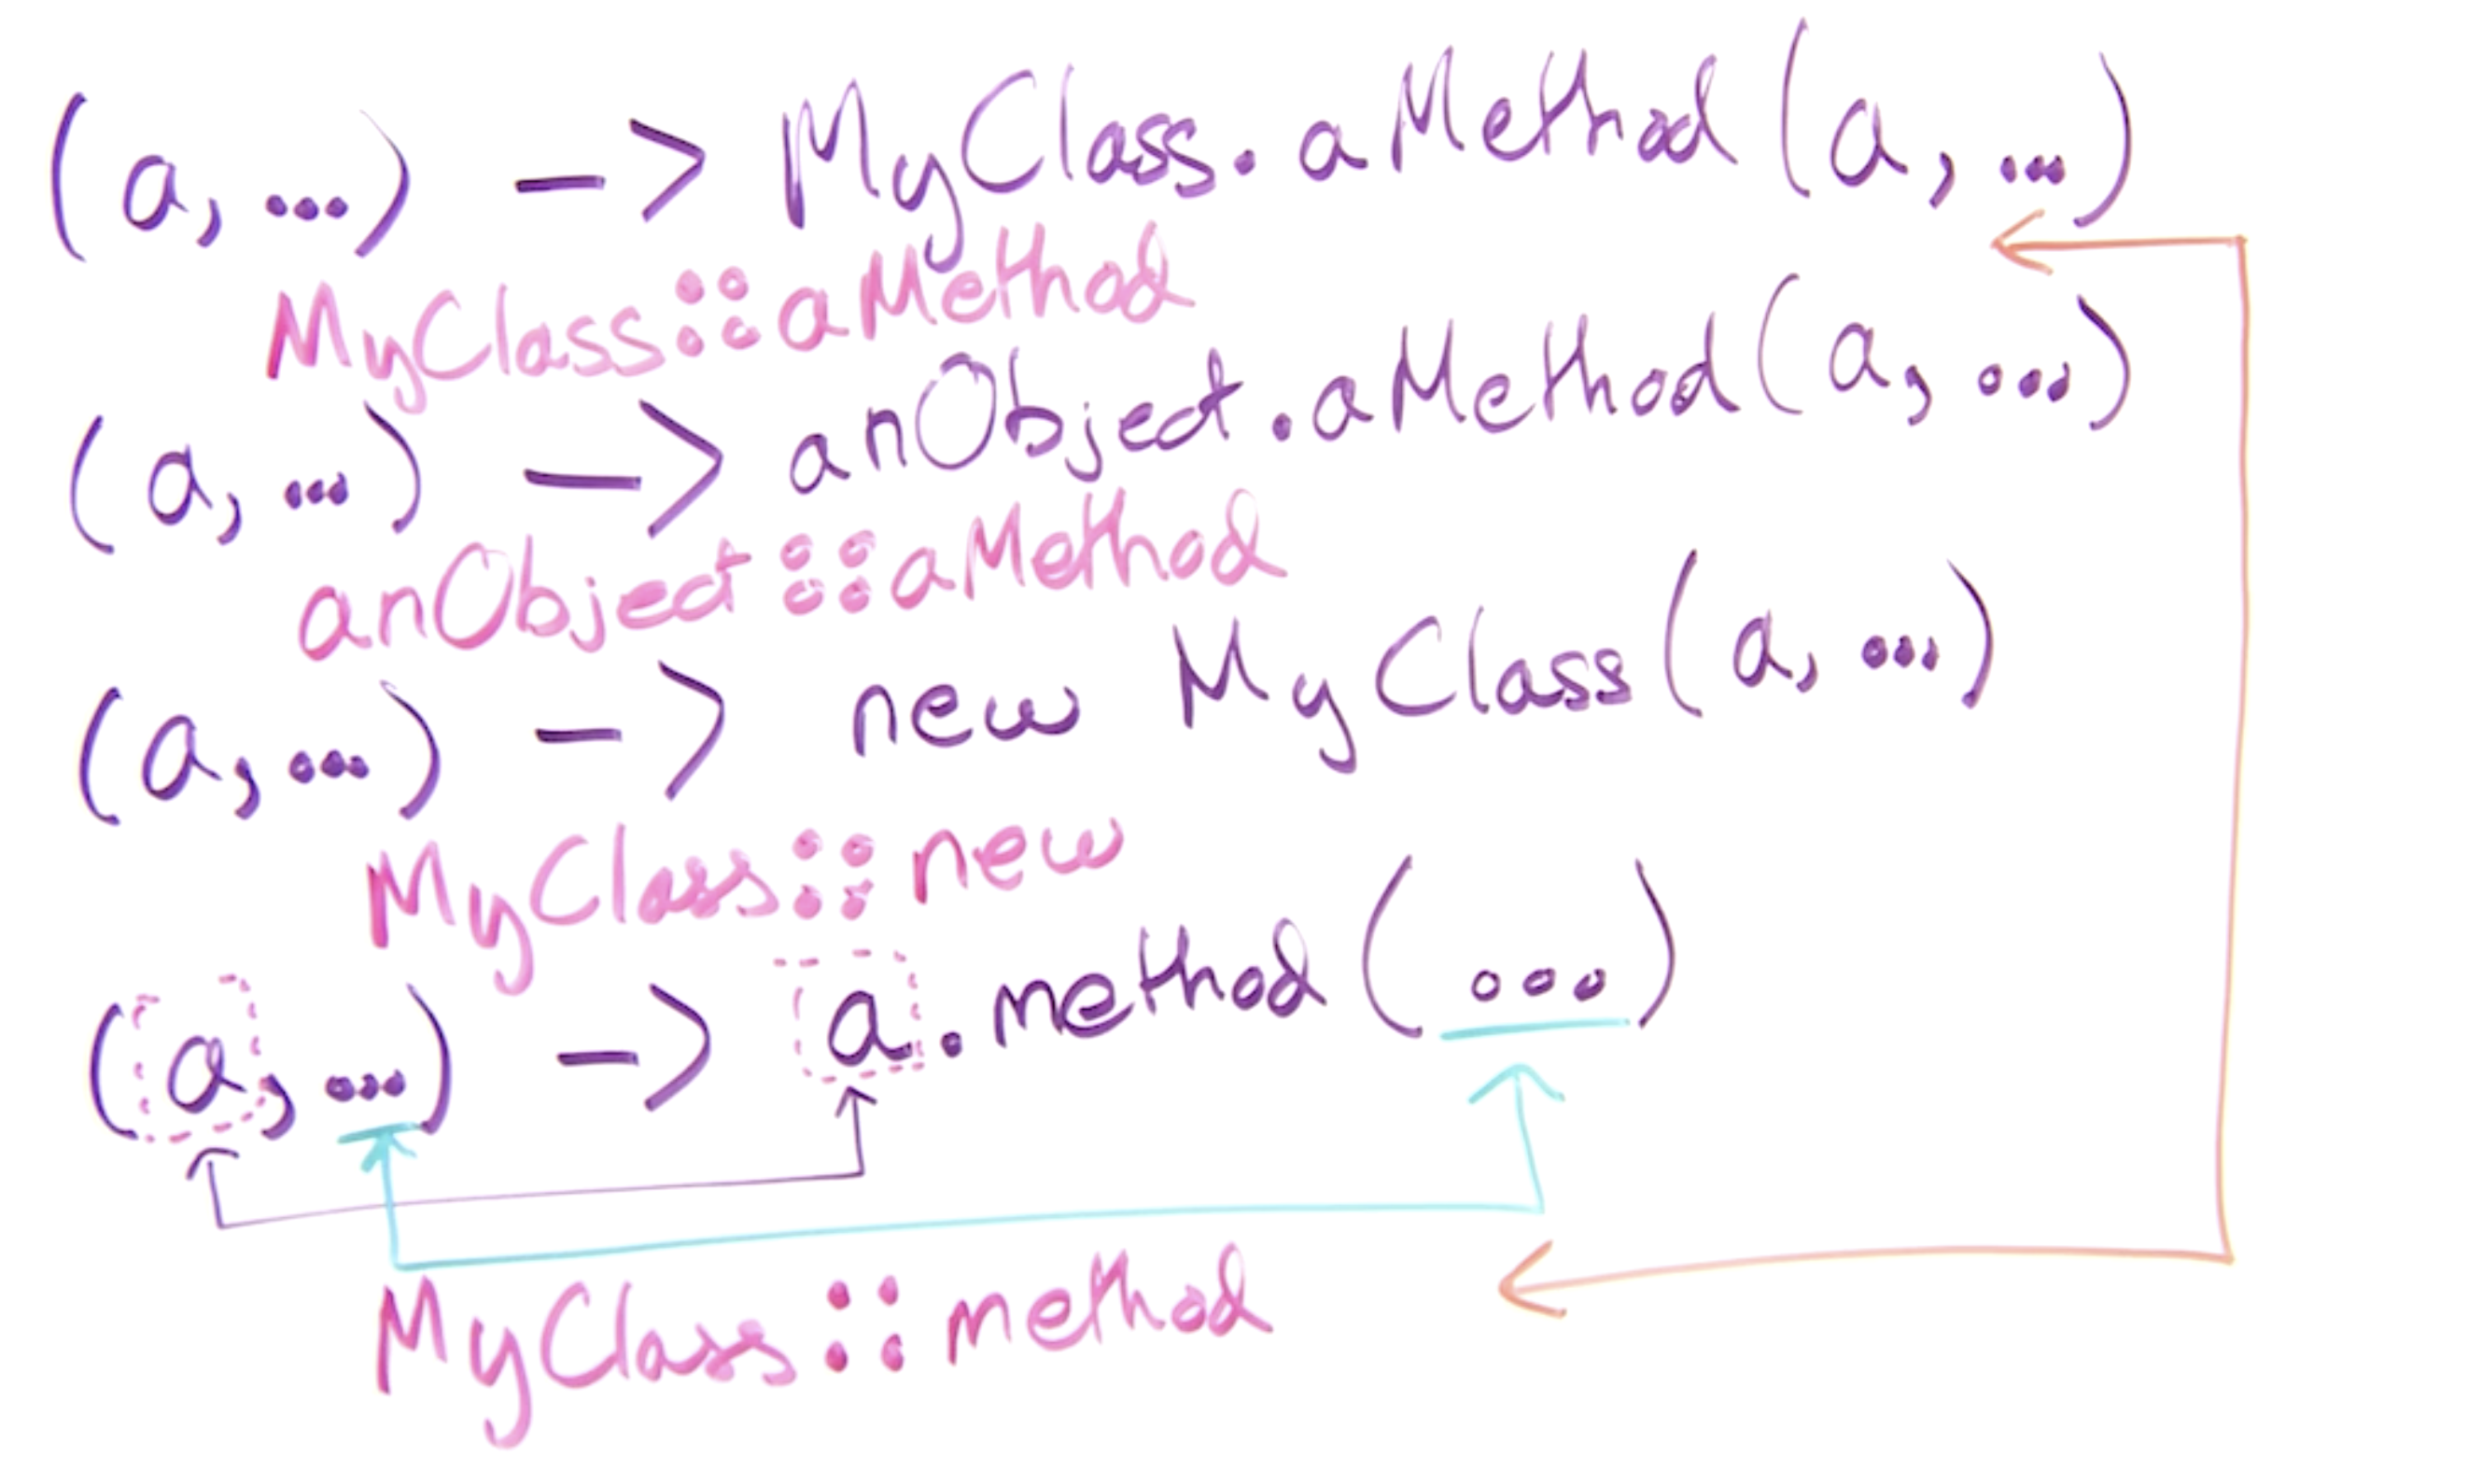 (a, ...) -> MyClass.aMethod(a, ...)
MyClass::aMethod
(a, ...) -> anObject.aMethod(a, ...)
anObject::aMethod
(a, ...) -> new MyClass(a, ...)
MyClass::new
(a, ...) -> a.method(...)
MyClass::method